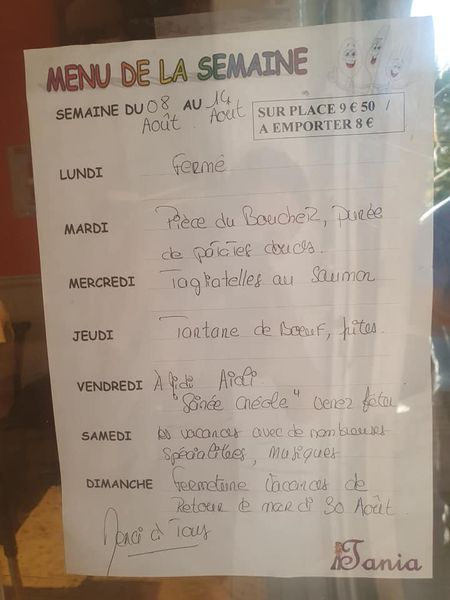 MENU DE LA SEMAINE
SEMAINE DU 08 Août AU 14 Août
SUR PLACE 9 € 50 /
A EMPORTER 8 €
LUNDI Fermé
MARDI Pièce du Boucher, purée
de patates douces.
MERCREDI Tagliatelles au Saumon
JEUDI Tartare de Boeuf, frites.
VENDREDI À midi Aïoli
"Soirée créole" venez fêter
SAMEDI les vacances avec de nombreuses
spécialitées, musiques
DIMANCHE Fermeture Vacances de
Retour le mardi 30 Août.
Merci à Tous
Tania